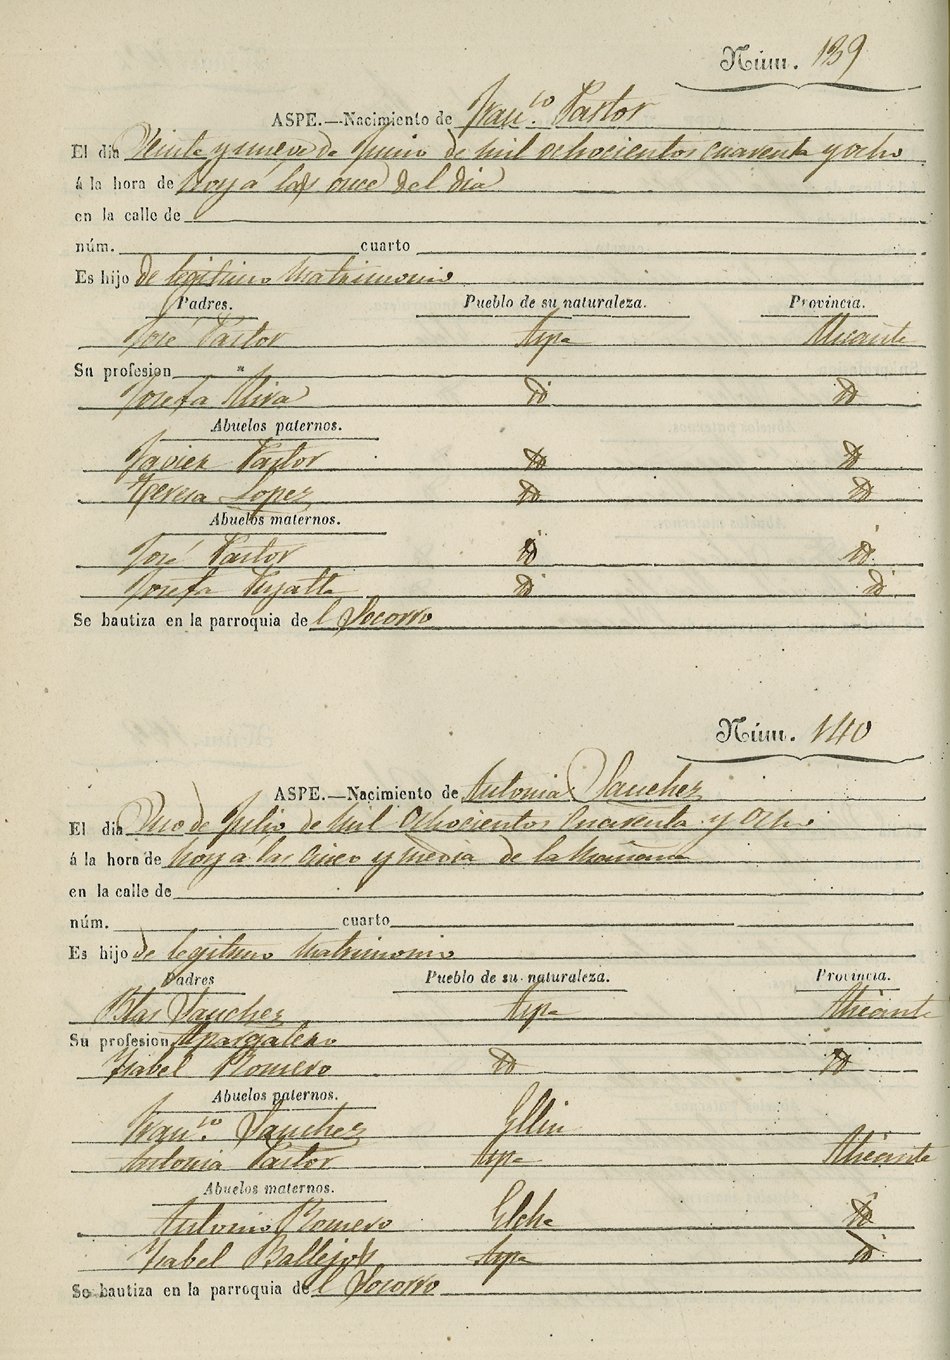 Núm. 139
ASPE.—Nacimiento de Fran.co Pastor
El día Veinte y nueve de Junio de mil ochocientos cuarenta y ocho
á la hora de hoy á las once del dia
en la calle de
núm. cuarto
Es hijo de legitimo Matrimonio
Padres. Pueblo de su naturaleza. Provincia.
José Pastor Aspe Alicante
Su profesion "
Josefa Mira id id
Abuelos paternos.
Javier Pastor id id
Teresa Lopez id id
Abuelos maternos.
José Pastor id id
Josefa id id
Se bautiza en la parroquia del Socorro
Núm. 140
ASPE.—Nacimiento de Antonia Sanchez
El día Uno de Julio de mil Ochocientos Cuarenta y Ocho
á la hora de hoy a las Cinco y media de la Mañana
en la calle de
núm. cuarto
Es hijo de legitimo Matrimonio
Padres Pueblo de su naturaleza. Provincia.
Blas Sanchez Aspe Alicante
Su profesion Alpargatero
Ysabel Romero id id
Abuelos paternos.
Fran.co Sanchez Ellin
Antonia Pastor Aspe Alicante
Abuelos maternos.
Antonio Romero Elche id
Ysabel Ballejos Aspe id
Se bautiza en la parroquia del Socorro